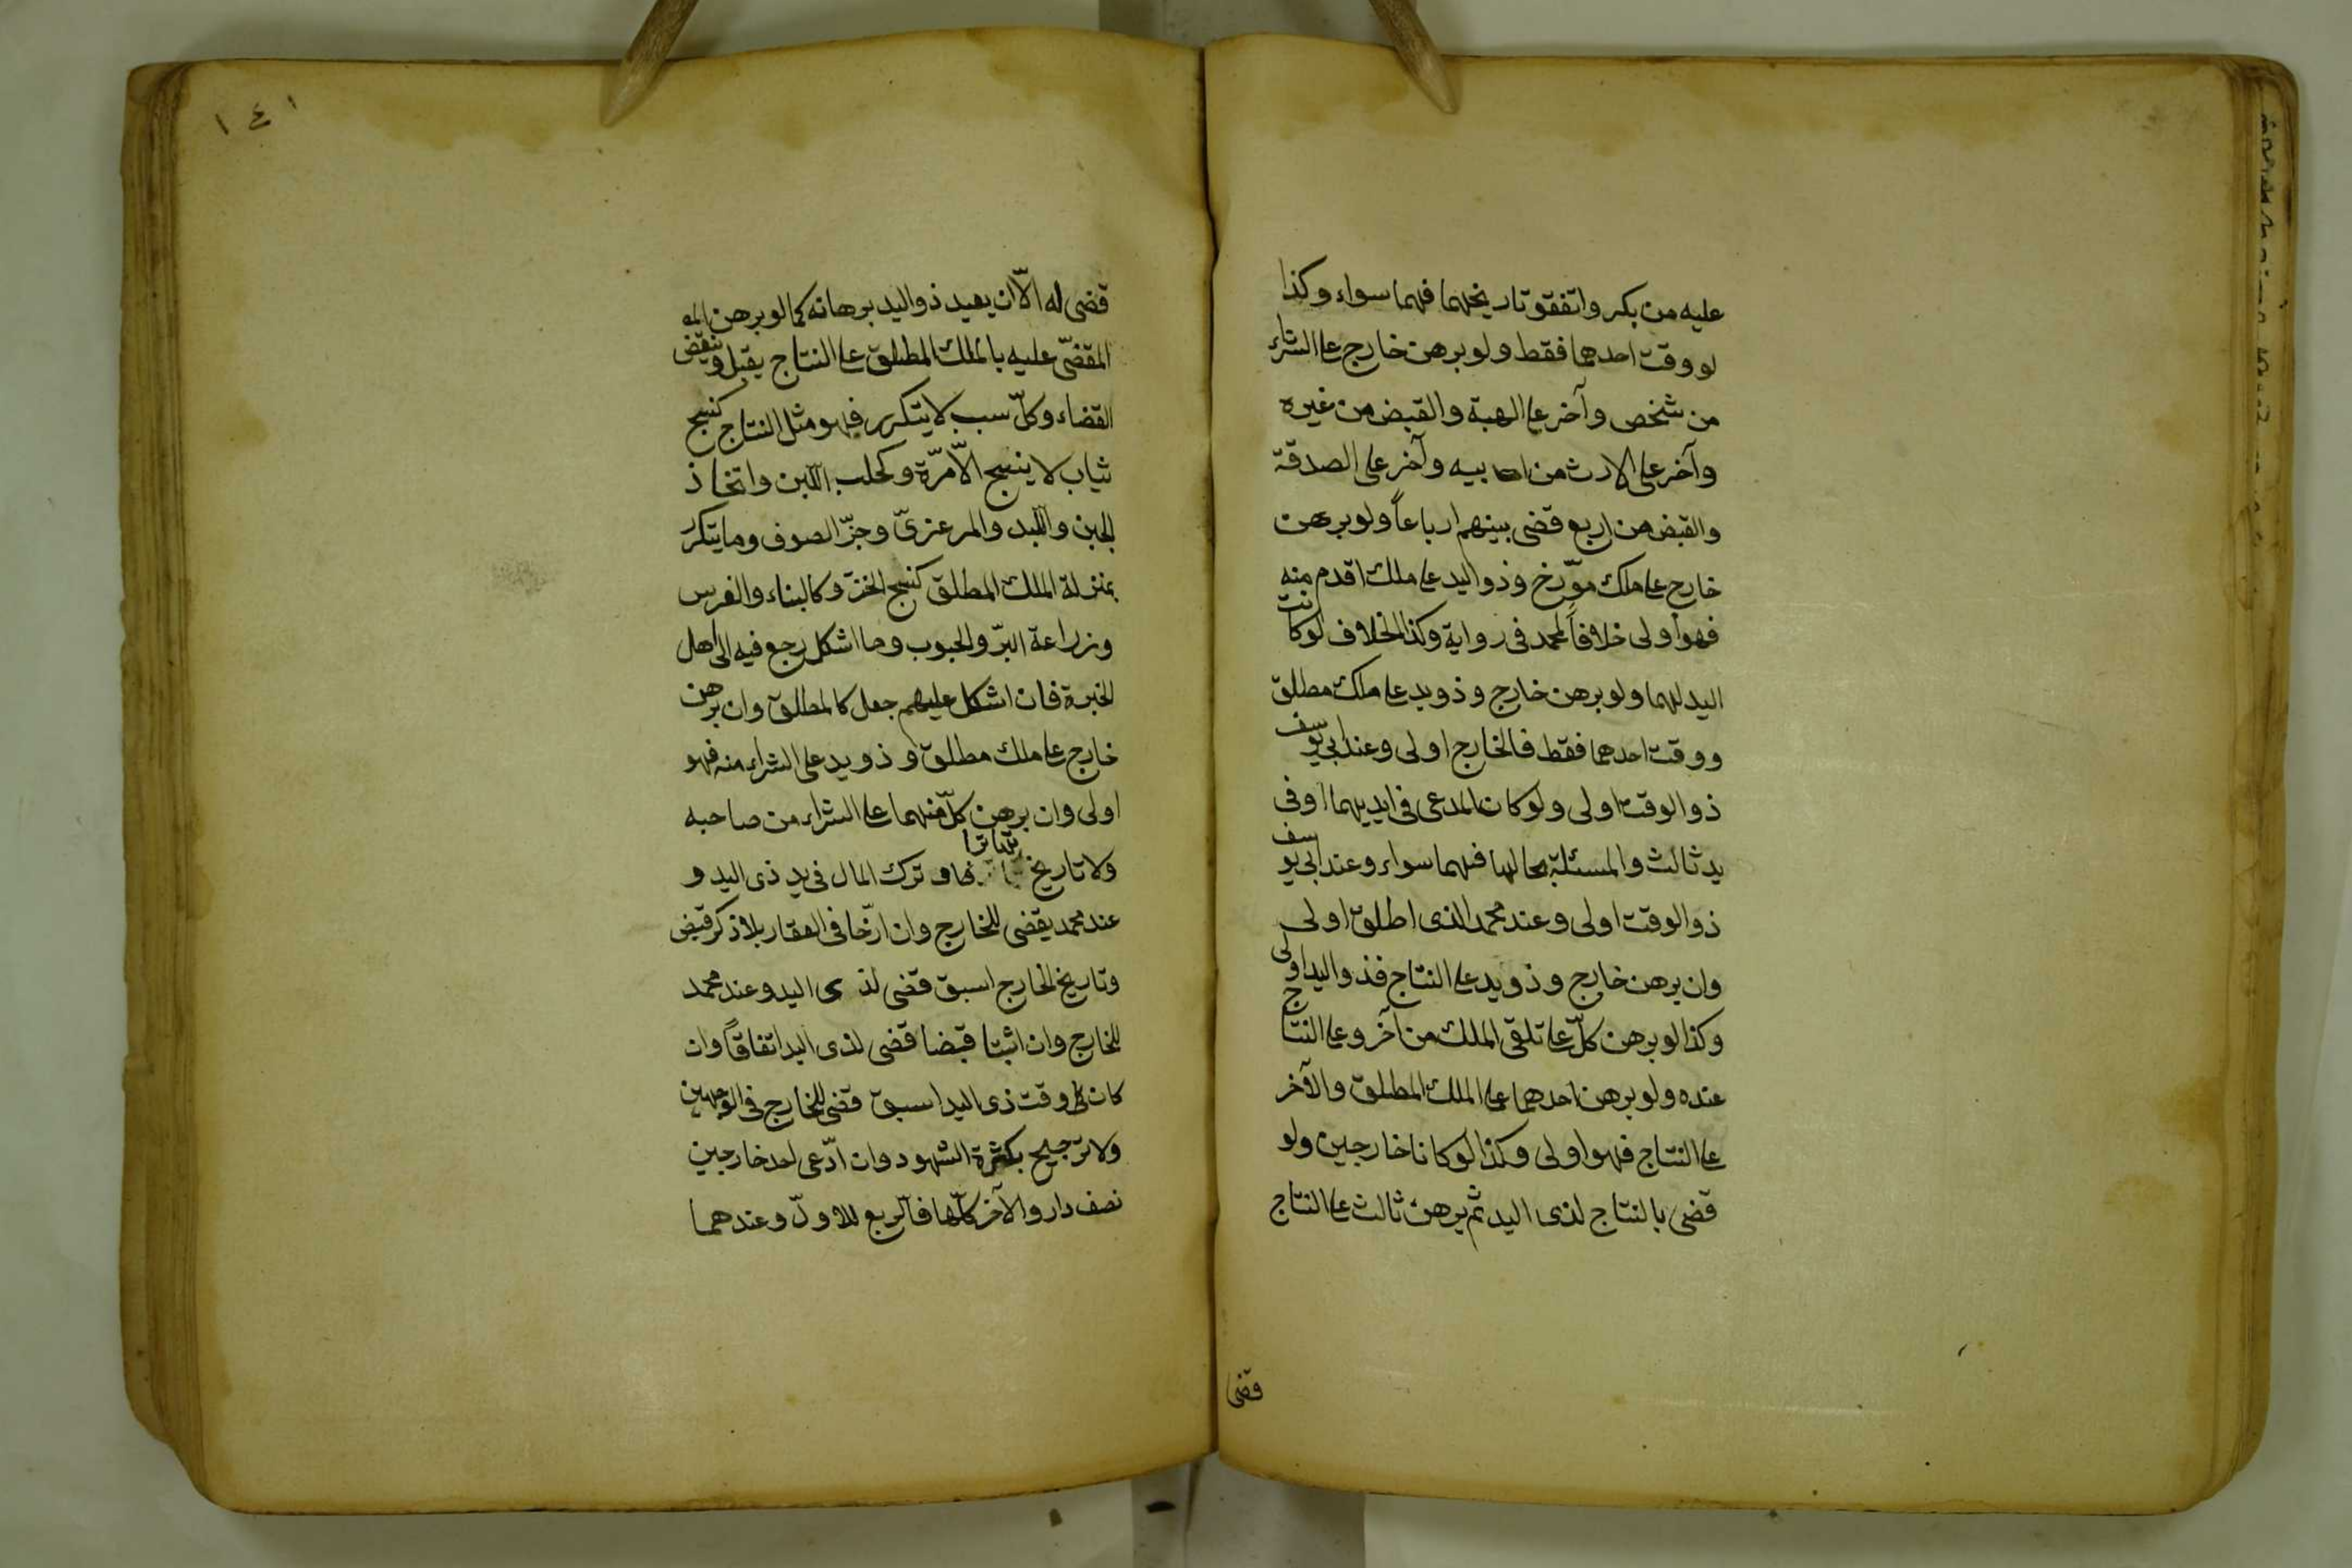 عليه من بكر واتفقوتاريخهما فهما سواء وكذا
لو وقت احدهما فقط ولو برهن خارج على الشراء
من شخص وآخر على الهبة والقبض من غيره
وآخر على الارث من ابيه وآخر على الصدقة
والقبض من اربع قضى بينهم ارباعاً ولو برهن
خارج على ملك مؤرّخ وذو اليد على ملك اقدم منه
فهو اولى خلافاً لمحمد فى رواية وكذا الخلاف لوكانت
اليد لهما ولو برهن خارج وذو يد على ملك مطلق
ووقت احدهما فقط فالخارج اولى وعند ابي يوسف
ذو الوقت اولى ولو كان المدعى فى ايديهما او فى
يد ثالث والمسئلة بحالها فهما سواء وعند ابي يوسف
ذو الوقت اولى وعند محمد الذى اطلق اولى
وان برهن خارج وذو يد على النتاج فذو اليد اولى
وكذا لو برهن كلّ على تلقى الملك من آخر وعلى النتاج
عنده ولو برهن احدهما على الملك المطلق والآخر
على النتاج فهو اولى وكذا لوكانا خارجين ولو
قضى بالنتاج لذى اليد ثم برهن ثالث على النتاج
قضى
١٤١
قضى له الاّ ان يعيد ذو اليد برهانه كما لو برهن
المقضّى عليه بالملك المطلق على النتاج يقبل وينقض
القضاء وكلّ سبب لا يتكرر فهو مثل النتاج كنسج
ثياب لا ينسج الاّ مرّة وكحلب اللبن واتخاذ
الجبن واللبد والمرعزىّ وجزّ الصوف وما يتكرر
بمنزلة الملك المطلق كنسج الخز وكالبناء والغرس
وزراعة البرّ والحبوب وما اشكل رجع فيه الى اهل
الخبرة فان اشكل عليهم جعل كالمطلق وان برهن
خارج على ملك مطلق وذو يد على الشراء منه فهو
اولى وان برهن كلّ منهما على الشراء من صاحبه
ولا تاريخ تهاترا وترك المال فى يد ذى اليد و
عند محمد يقضى للخارج وان ارّخا فى العقار بلا ذكر قبض
وتاريخ الخارج اسبق قضى لذى اليد وعند محمد
للخارج وان اثبتا قبضا قضى لذى اليد اتفاقاً وان
كان وقت ذى اليد اسبق قضى للخارج فى الوجهين
ولا ترجيح بكثرة الشهود وان ادّعى احد خارجين
نصف دار والآخر كلّها فالربع للاوّل وعندهما